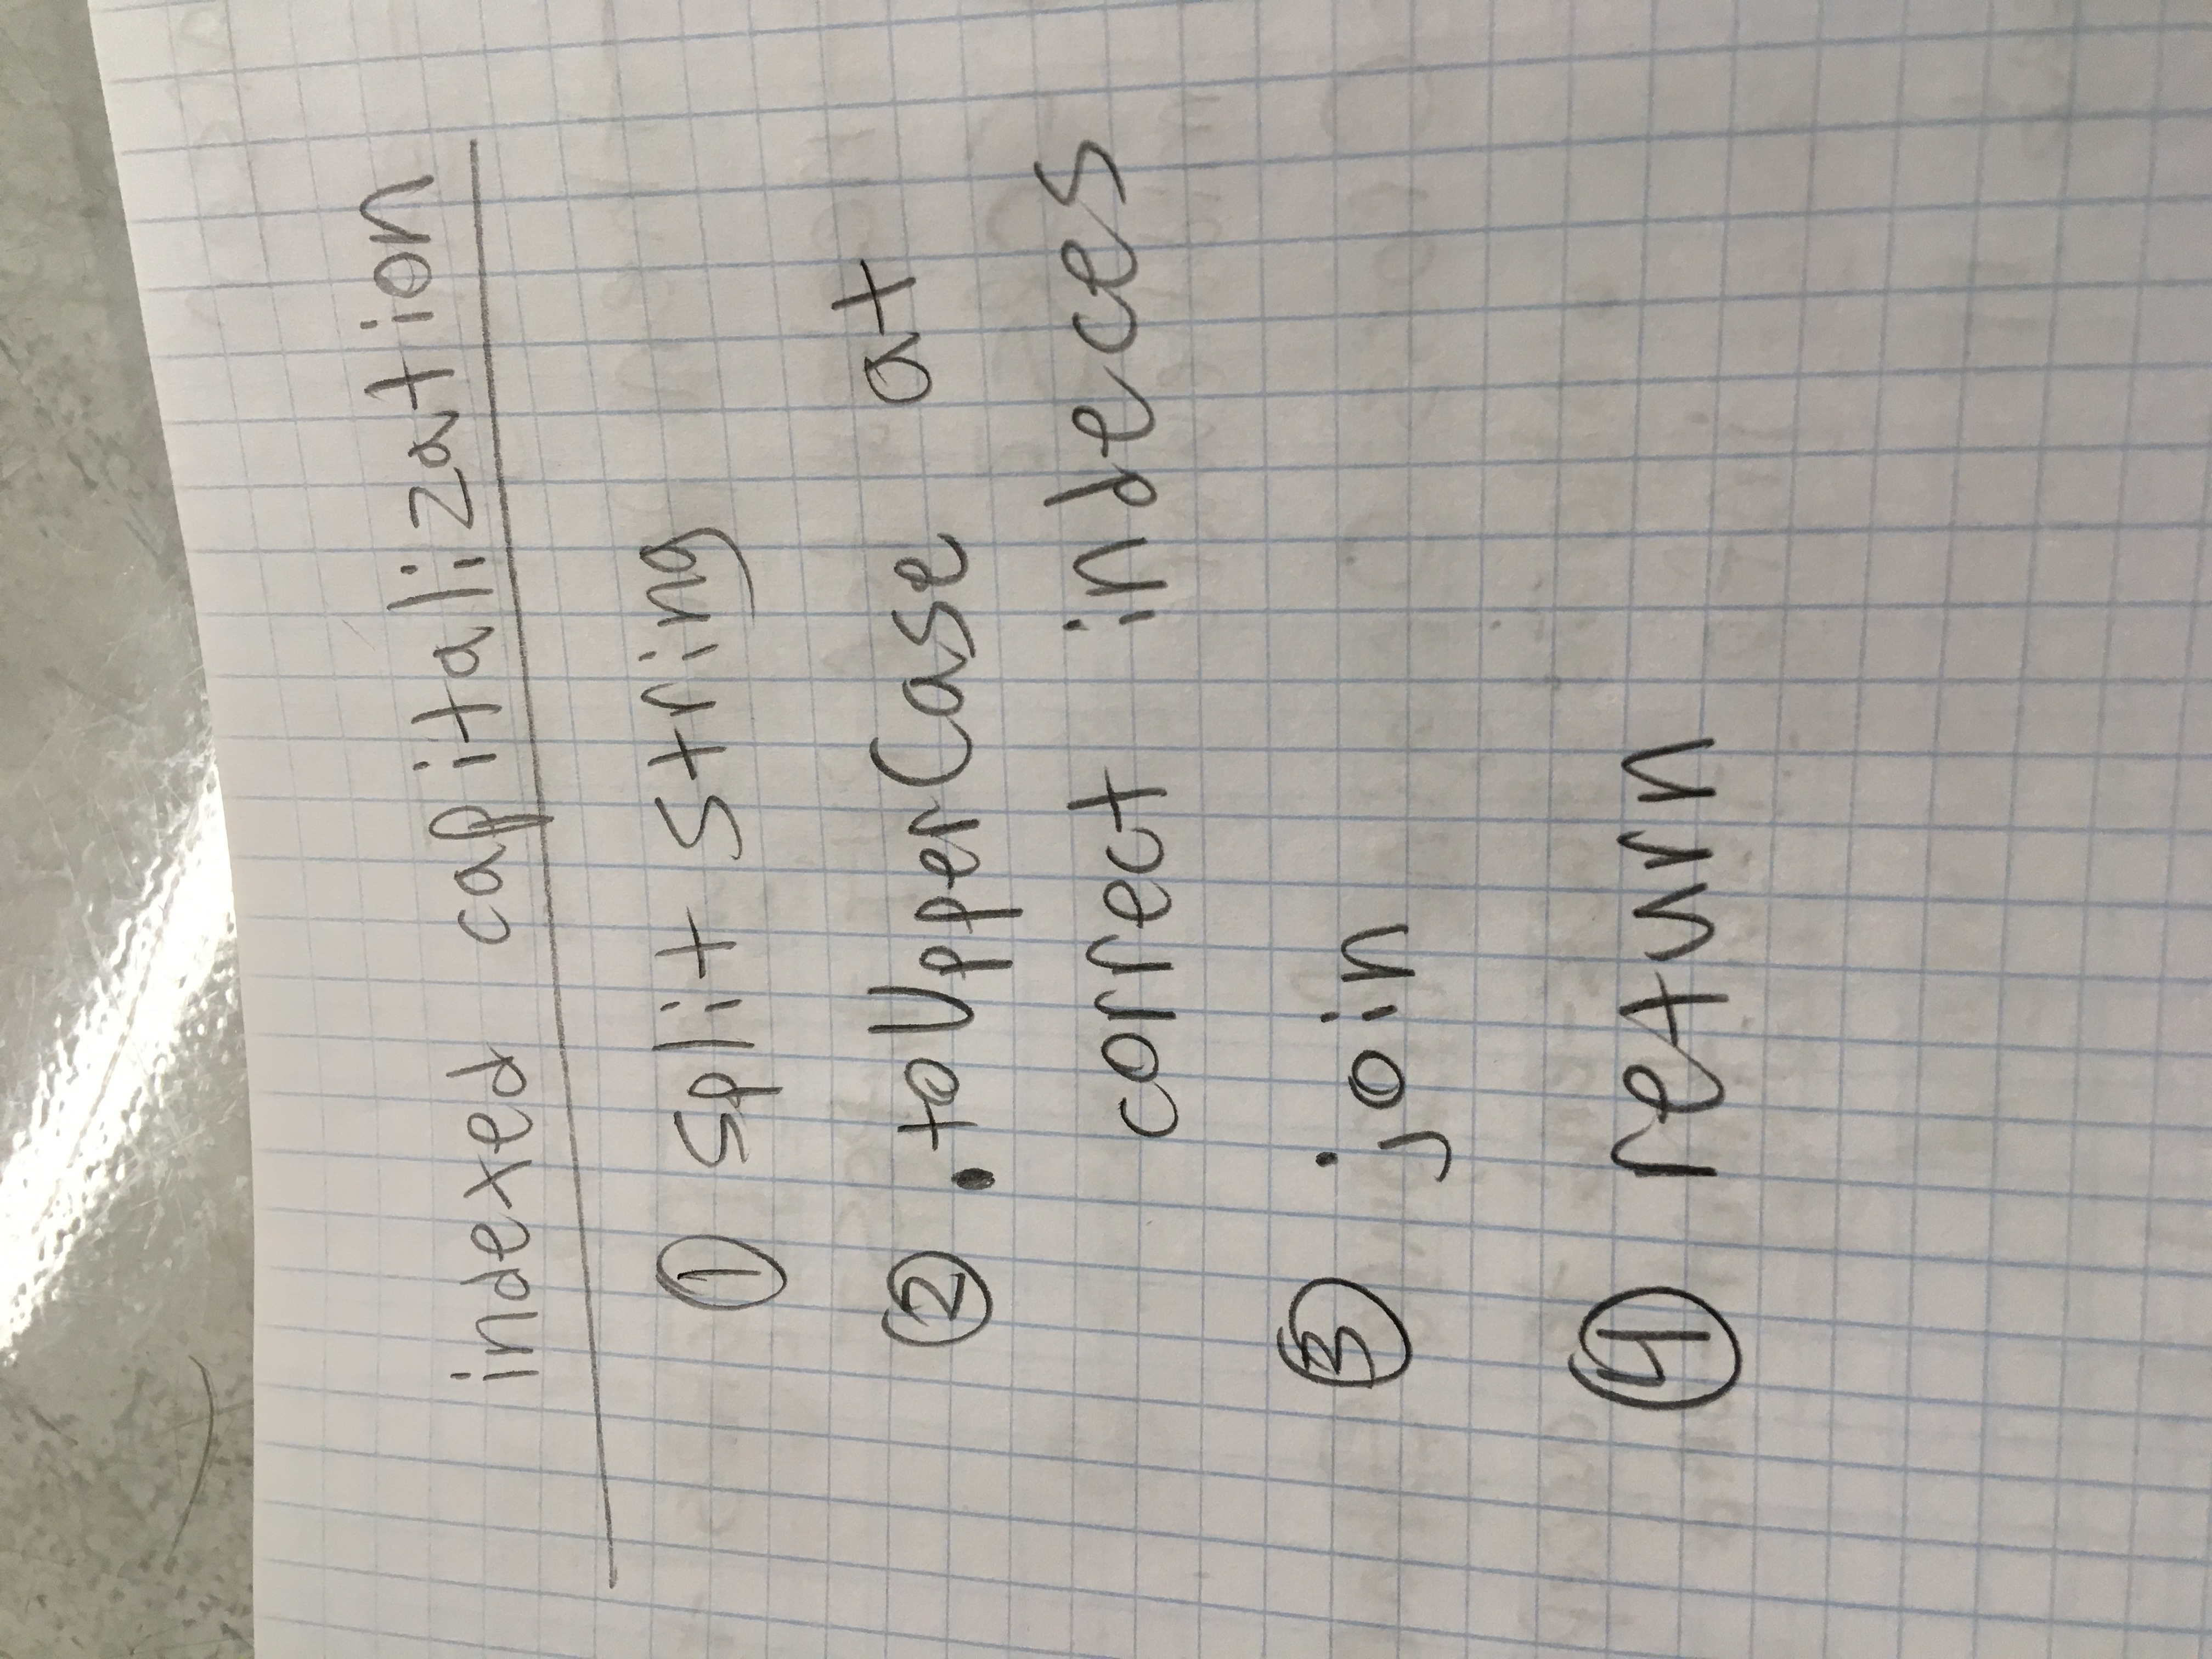 indexed capitalization
① split string
② .toUpperCase at
correct indeces
③ join
④ return